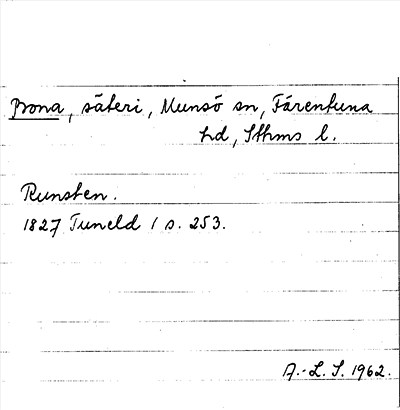 Bona, säteri, Munsö sn, Färentuna
hd, Sthms l.
Runsten.
1827 Tuneld 1 s. 253.
A.-L. S. 1962.